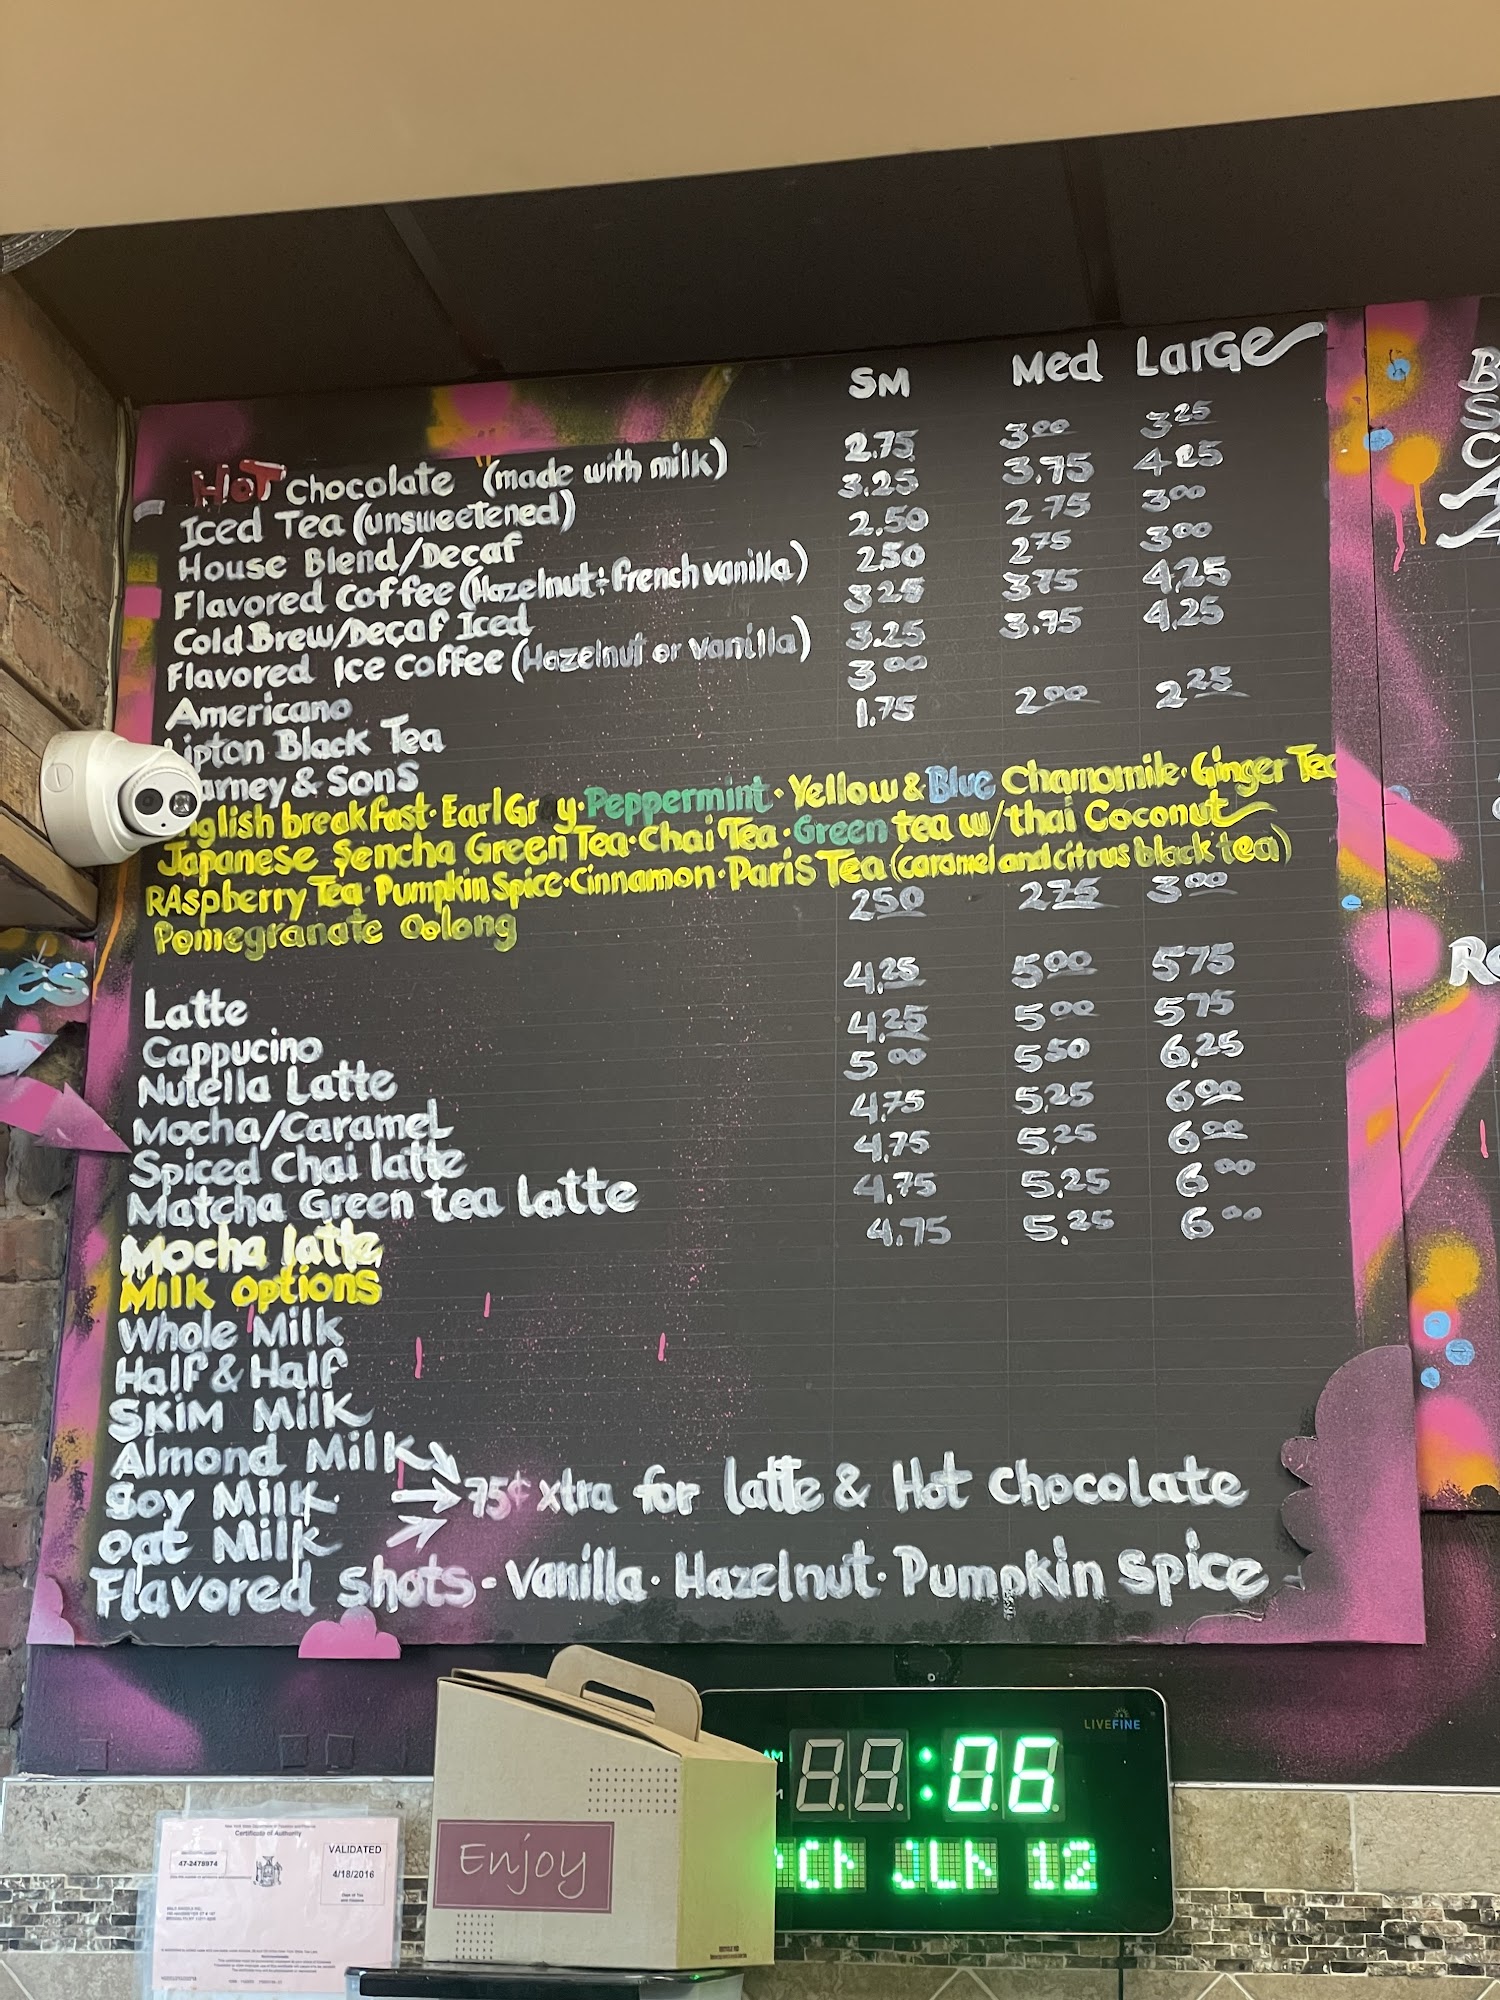 SM Med Large
HOT Chocolate (made with milk) 2.75 3.00 3.25
Iced Tea (unsweetened) 3.25 3.75 4.25
House Blend/Decaf 2.50 2.75 3.00
Flavored Coffee (Hazelnut & french vanilla) 2.50 2.75 3.00
Cold Brew/Decaf Iced 3.25 3.75 4.25
Flavored Ice Coffee (Hazelnut or vanilla) 3.25 3.75 4.25
Americano 3.00
Lipton Black Tea 1.75 2.00 2.25
arney & Sons
nglish breakfast · Earl Gr y · Peppermint · Yellow & Blue Chamomile · Ginger Tea
Japanese Sencha Green Tea · Chai Tea · Green tea w/ thai Coconut
RAspberry Tea · Pumpkin Spice · Cinnamon · Paris Tea (caramel and citrus black tea)
Pomegranate Oolong 2.50 2.75 3.00
Latte 4.25 5.00 5.75
Cappucino 4.25 5.00 5.75
Nutella Latte 5.00 5.50 6.25
Mocha/Caramel 4.75 5.25 6.00
Spiced Chai latte 4.75 5.25 6.00
Matcha Green tea Latte 4.75 5.25 6.00
Mocha latte 4.75 5.25 6.00
Milk options
Whole Milk
Half & Half
SKiM Milk
Almond Milk
Soy Milk 75¢ xtra for latte & Hot Chocolate
oat Milk
Flavored shots - Vanilla · Hazelnut · Pumpkin Spice
LIVEFINE
AM
:06
12
Enjoy
Certificate of Authority
47-2478974
VALIDATED
4/18/2016